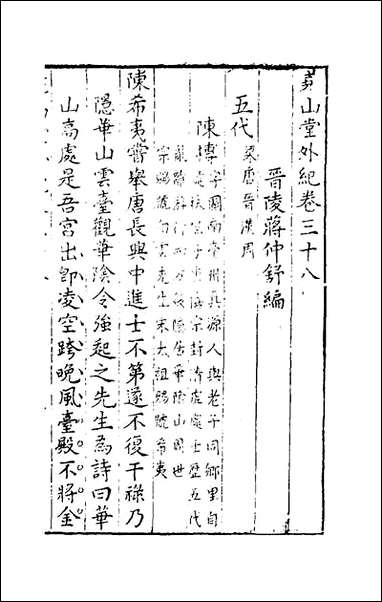 堯山堂外紀卷三十八
晉陵蔣仲舒編
五代 梁唐晉漢周
陳摶 字圖南亳州真源人與老子同鄉里自
宗封清虛處士歷五代
隱居華陰山周世
宗賜號白雲先生宋太祖賜號希夷
陳希夷嘗舉唐長興中進士不第遂不復干祿乃
隱華山雲臺觀華陰令強起之先生為詩曰華
山高處是吾宮出卽凌空跨曉風臺殿不將金